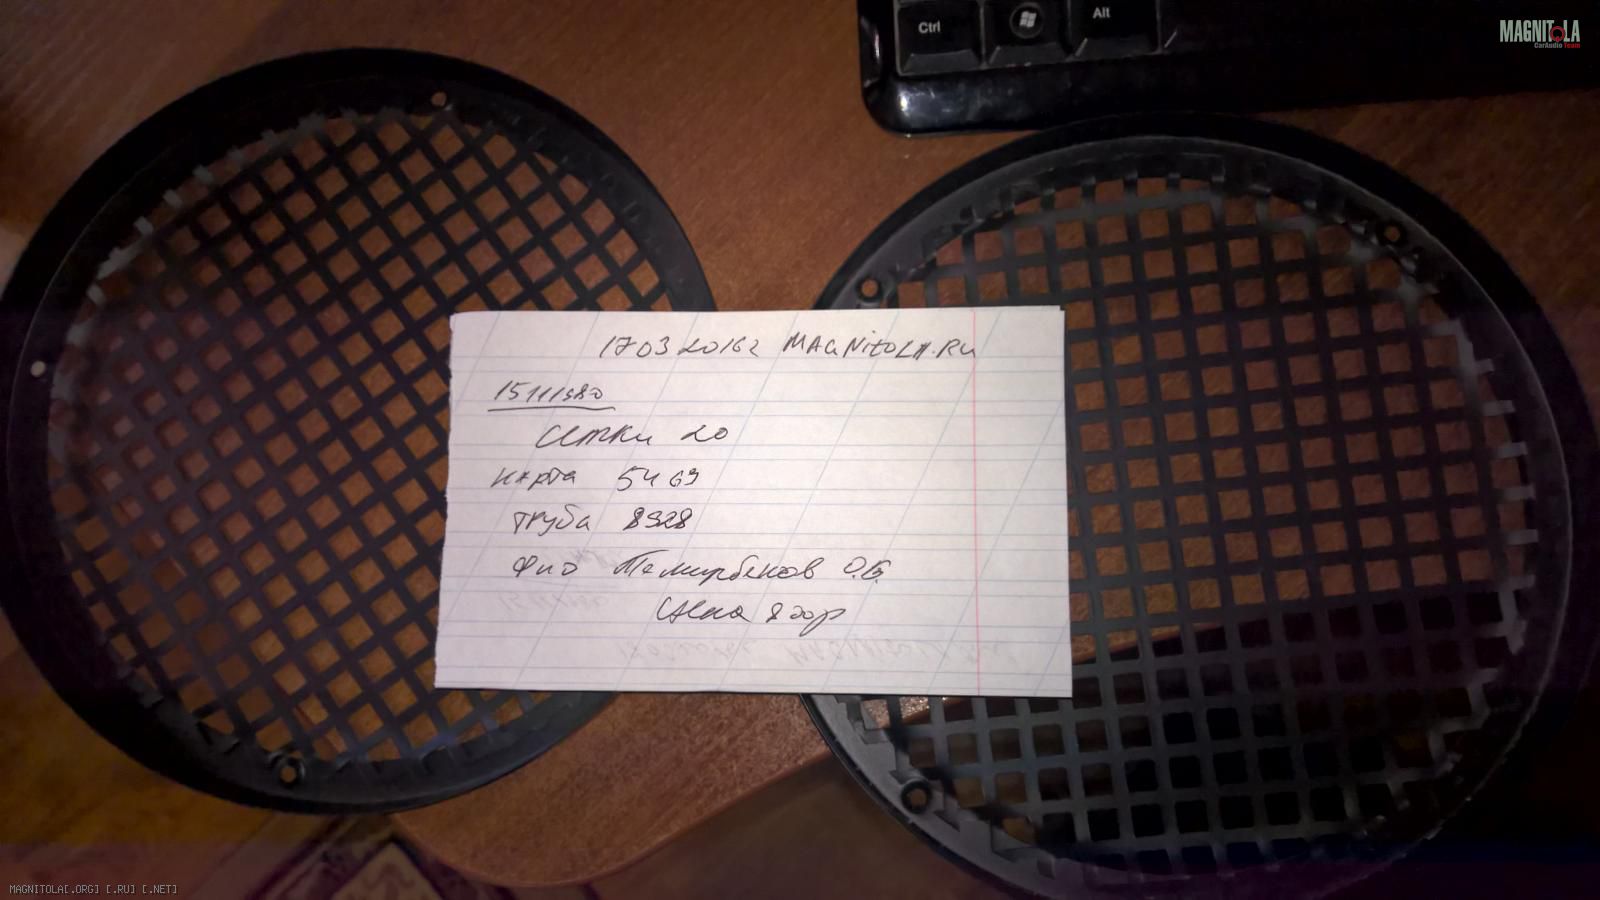 Ctrl
Alt
MAGNITOLA
CarAudio Team
17032016г MAGNITOLA.RU
15111980
Сетки 20
карта 5469
труба 8928
Фио Темирбеков О.Б.
Цена 800р
MAGNITOLA[.ORG] [.RU] [.NET]